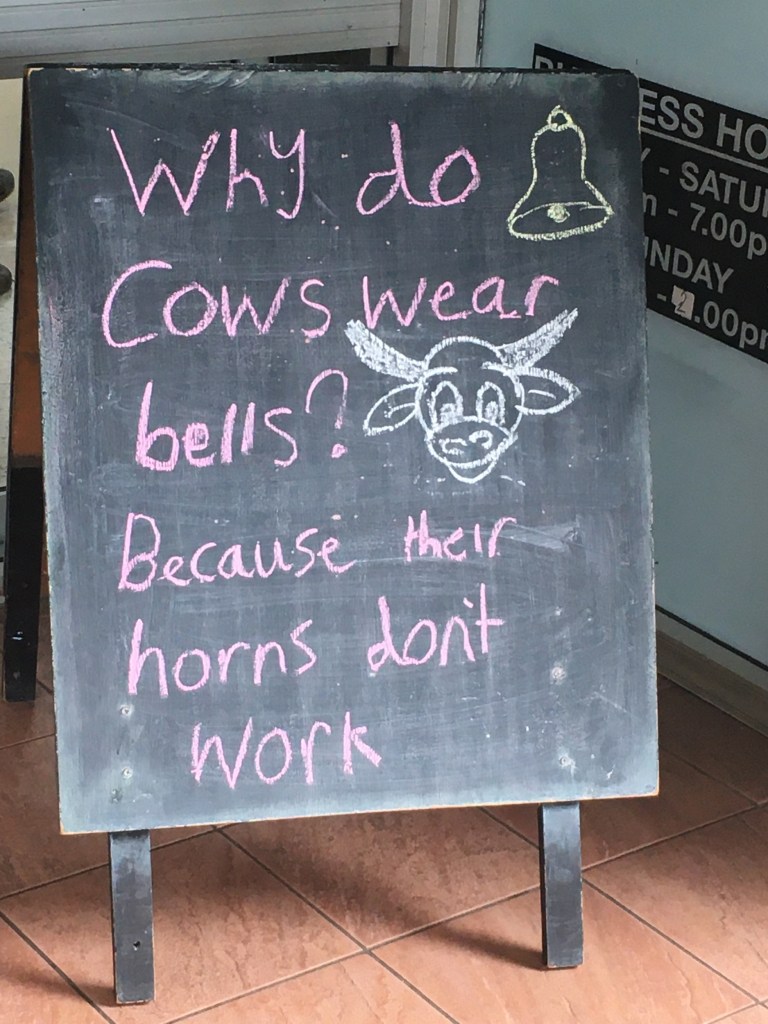 Why do
Cows wear
bells?
Because their
horns don't
work
ESS HO
- SATUR
- 7.00p
UNDAY
- 2.00pm